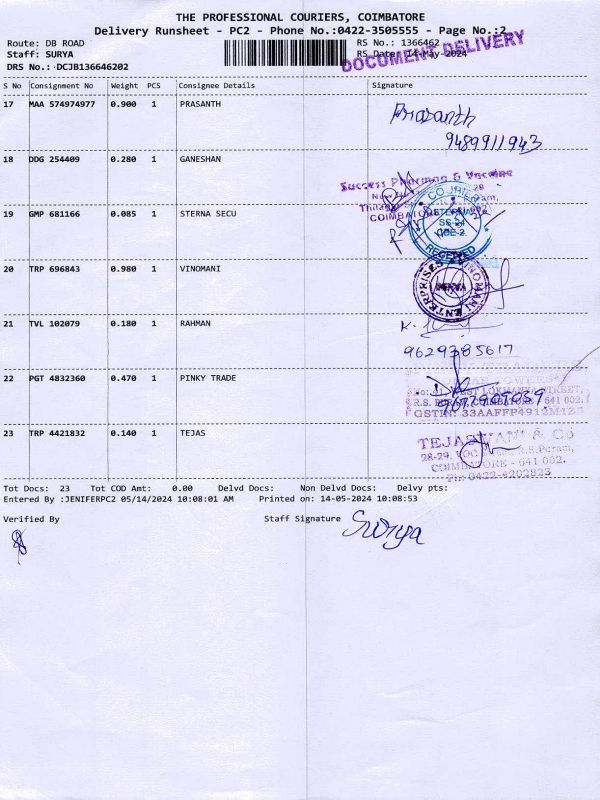 THE PROFESSIONAL COURIERS, COIMBATORE
Delivery Runsheet - PC2 - Phone No.:0422-3505555 - Page No.:2
Route: DB ROAD RS No.: 1366462
Staff: SURYA RS Date: 14-May-2024
DOCUMENT DELIVERY
DRS No.: DCJB136646202
S No Consignment No Weight PCS Consignee Details Signature
17 MAA 574974977 0.900 1 PRASANTH
Prasanth
9489911943
18 DDG 254409 0.280 1 GANESHAN
Success Pharma & Vaccine
COIMBATORE
19 GMP 681166 0.085 1 STERNA SECU
COURIER
SS-24
CBE-2
RECEIVED
20 TRP 696843 0.980 1 VINOMANI
VINOMANI ENTERPRISES
21 TVL 102079 0.180 1 RAHMAN
9629385617
22 PGT 4832360 0.470 1 PINKY TRADE
R.S. PURAM, COIMBATORE - 641 002.
GSTIN: 33AAFFP4912M1Z5
23 TRP 4421832 0.140 1 TEJAS
TEJASWANI & Co
28-29, VOC Street, R.S.Puram,
COIMBATORE - 641 002.
Ph: 0422-4202823
Tot Docs: 23 Tot COD Amt: 0.00 Delvd Docs: Non Delvd Docs: Delvy pts:
Entered By :JENIFERPC2 05/14/2024 10:08:01 AM Printed on: 14-05-2024 10:08:53
Verified By Staff Signature Surya